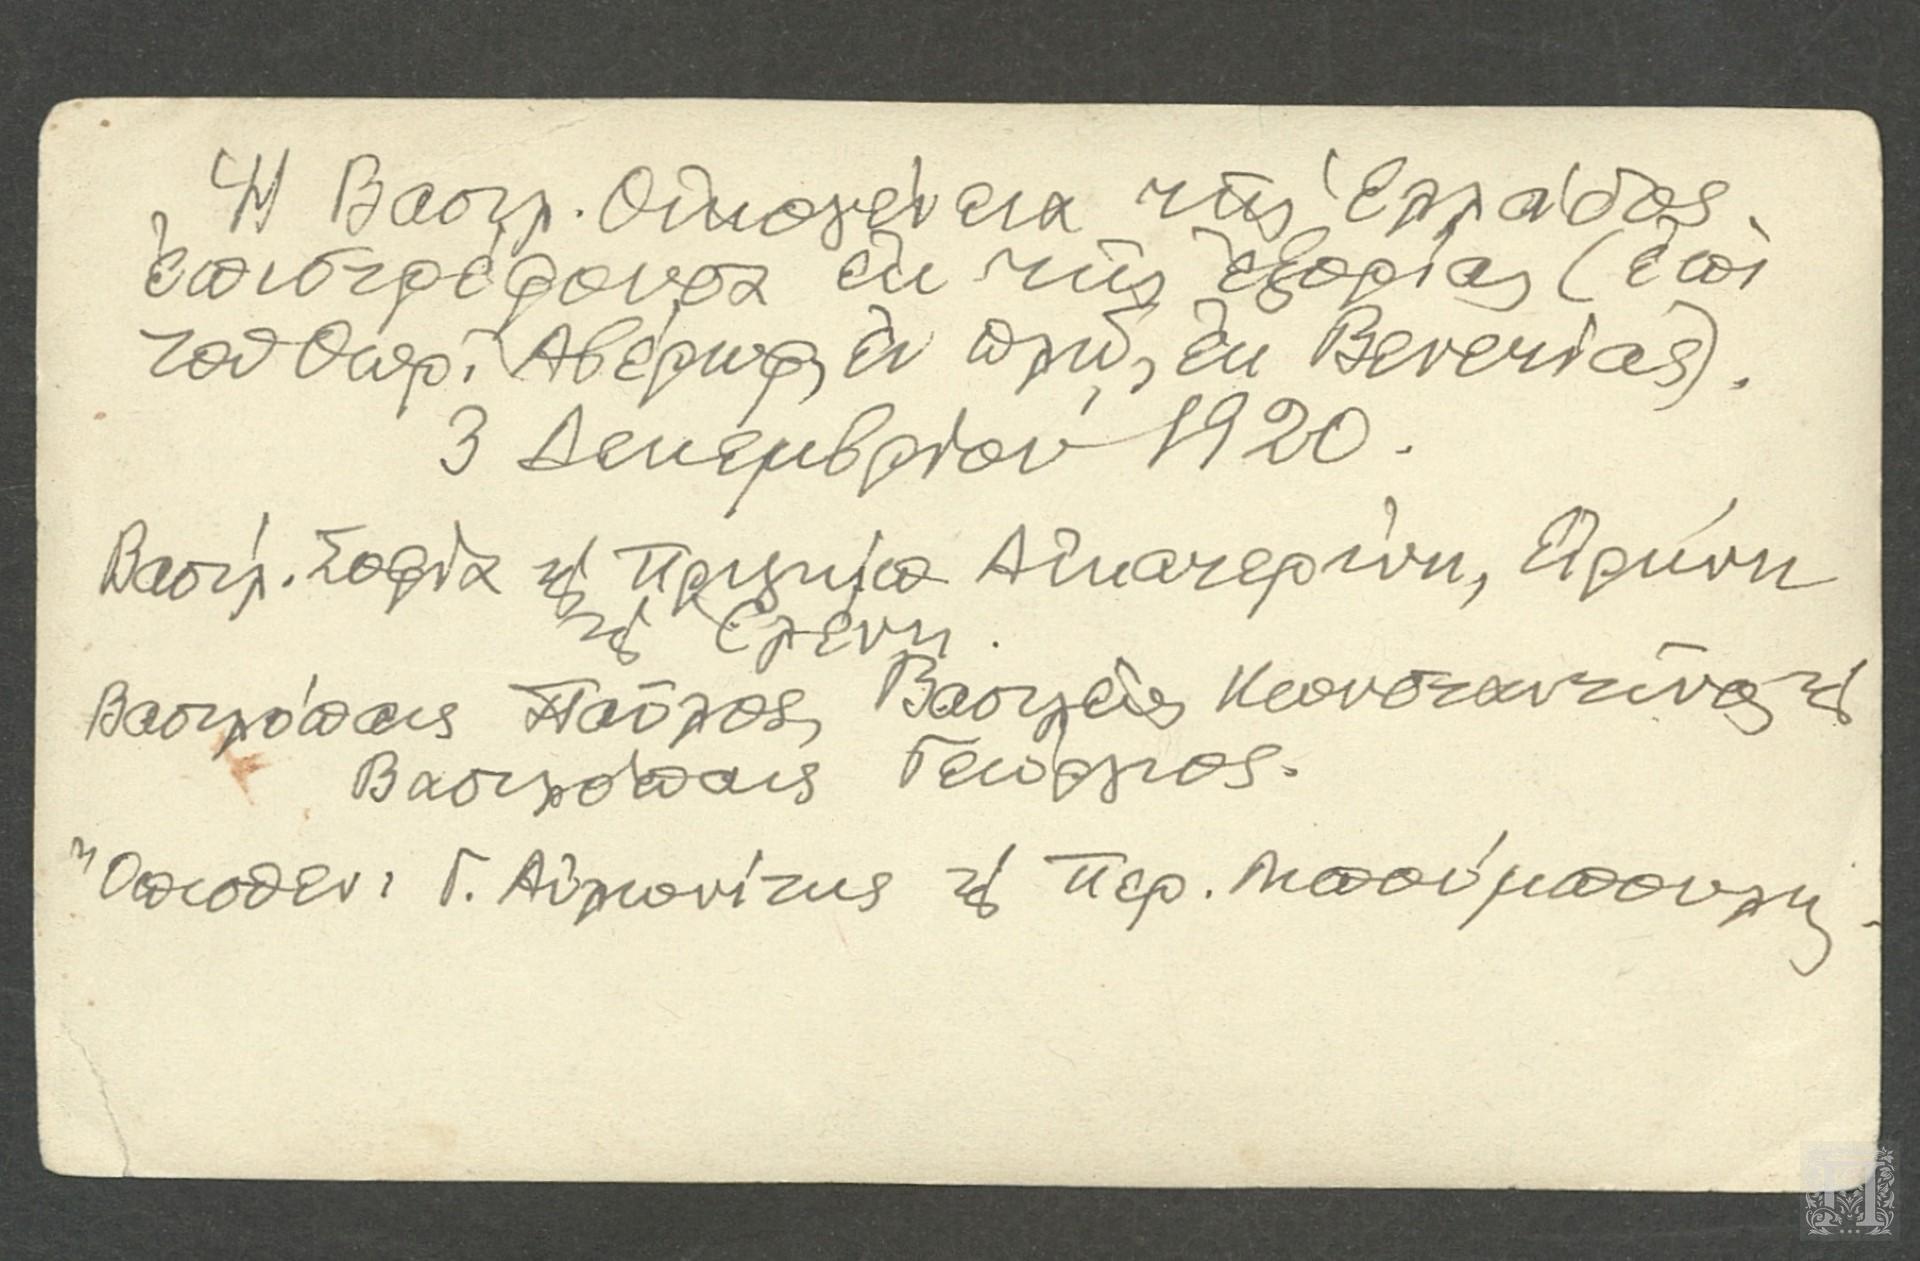 Ἡ Βασιλ. Οἰκογένεια τῆς Ἑλλάδος
ἐπιστρέφουσα ἐκ τῆς ἐξορίας (ἐπὶ
τοῦ Θωρ. Ἀβέρωφ, ἐν πλῷ, ἐκ Βενετίας).
3 Δεκεμβρίου 1920.
Βασίλ. Σοφία κ' Πριγκίπ. Αἰκατερίνη, Εἰρήνη
κ' Ἑλένη.
Βασιλόπαις Παῦλος, Βασιλεὺς Κωνσταντῖνος κ'
Βασιλόπαις Γεώργιος.
Ὄπισθεν: Γ. Αὐλωνίτης κ' Περ. Μπούμπουλης.